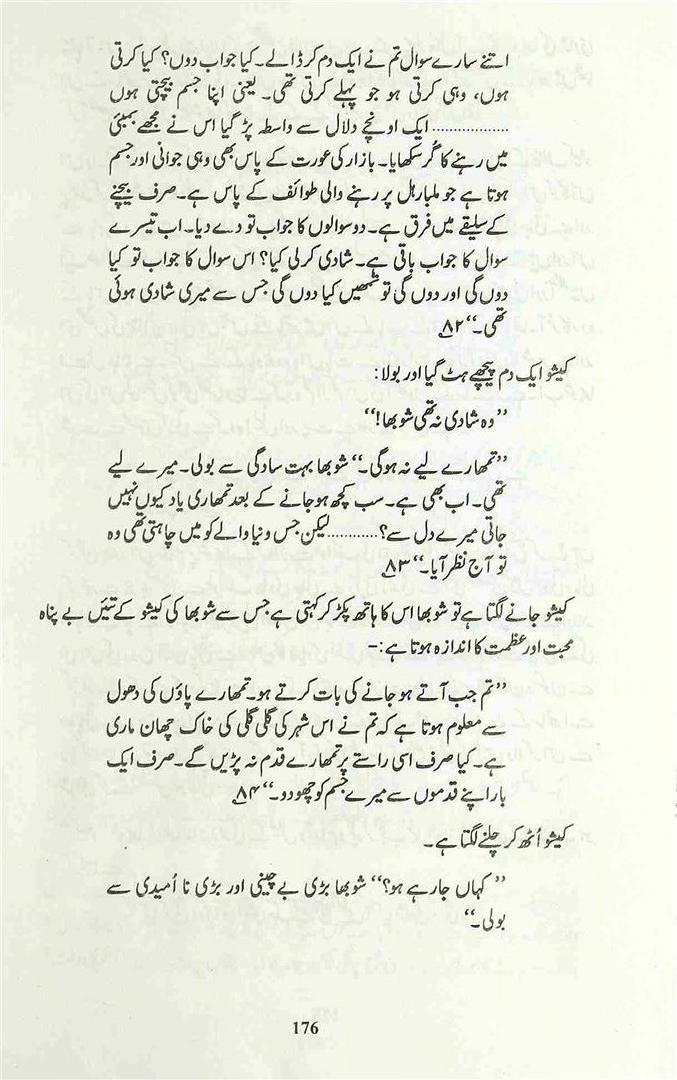 اتنے سارے سوال تم نے ایک دم کر ڈالے۔ کیا جواب دوں؟ کیا کرتی
ہوں، وہی کرتی ہو جو پہلے کرتی تھی۔ یعنی اپنا جسم بیچتی ہوں
.................. ایک اونچے دلال سے واسطہ پڑ گیا اس نے مجھے بمبئی
میں رہنے کا گُر سکھایا۔ بازار کی عورت کے پاس بھی وہی جوانی اور جسم
ہوتا ہے جو ملبار ہل پر رہنے والی طوائف کے پاس ہے۔ صرف بیچنے
کے سلیقے میں فرق ہے۔ دو سوالوں کا جواب تو دے دیا۔ اب تیسرے
سوال کا جواب باقی ہے۔ شادی کر لی کیا؟ اس سوال کا جواب تو کیا
دوں گی اور دوں گی تو تمھیں کیا دوں گی جس سے میری شادی ہوئی
تھی۔‘‘ ۸۲
کیشو ایک دم پیچھے ہٹ گیا اور بولا:
’’وہ شادی نہ تھی شوبھا!‘‘
’’تمھارے لیے نہ ہوگی۔‘‘ شوبھا بہت سادگی سے بولی۔ میرے لیے
تھی۔ اب بھی ہے۔ سب کچھ ہو جانے کے بعد تمھاری یاد کیوں نہیں
جاتی میرے دل سے؟ ............ لیکن جس دنیا والے کو میں چاہتی تھی وہ
تو آج نظر آیا۔‘‘ ۸۳
کیشو جانے لگتا ہے تو شوبھا اس کا ہاتھ پکڑ کر کہتی ہے جس سے شوبھا کی کیشو کے تئیں بے پناہ
محبت اور عظمت کا اندازہ ہوتا ہے:۔
’’تم جب آتے ہو جانے کی بات کرتے ہو۔ تمھارے پاؤں کی دھول
سے معلوم ہوتا ہے کہ تم نے اس شہر کی گلی گلی کی خاک چھان ماری
ہے۔ کیا صرف اسی راستے پر تمھارے قدم نہ پڑیں گے۔ صرف ایک
بار اپنے قدموں سے میرے جسم کو چھو دو۔‘‘ ۸۴
کیشو اُٹھ کر چلنے لگتا ہے۔
’’ کہاں جا رہے ہو؟‘‘ شوبھا بڑی بے چینی اور بڑی نا اُمیدی سے
بولی۔‘‘
176